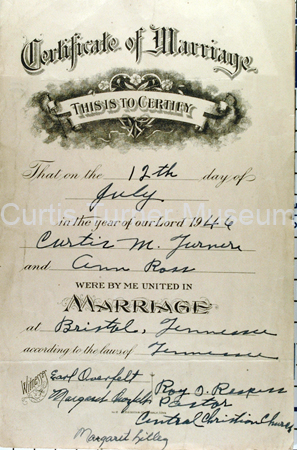 Certificate of Marriage
THIS IS TO CERTIFY
That on the 12th day of
July
in the year of our Lord 1946
Curtis Turner Museum
Curtis M. Turner
and Ann Ross
WERE BY ME UNITED IN
MARRIAGE
at Bristol, Tennessee
according to the laws of Tennessee
Witnesses
Earl Overfelt
Roy O.
Margaret
Pastor
Central Christian Church
Margaret Lilley